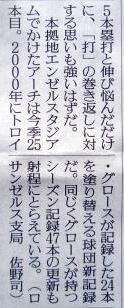 ５本塁打と伸び悩んだだけ
に、「打」の巻き返しに対
する思いも強いはずだ。
本拠地エンゼルスタジア
ムでかけたアーチは今季25
本目。２０００年にトロイ
・グロースが記録した24本
を塗り替える球団新記録
だ。同じくグロースが持つ
シーズン記録47本の更新も
射程にとらえている。（ロ
サンゼルス支局　佐野司）